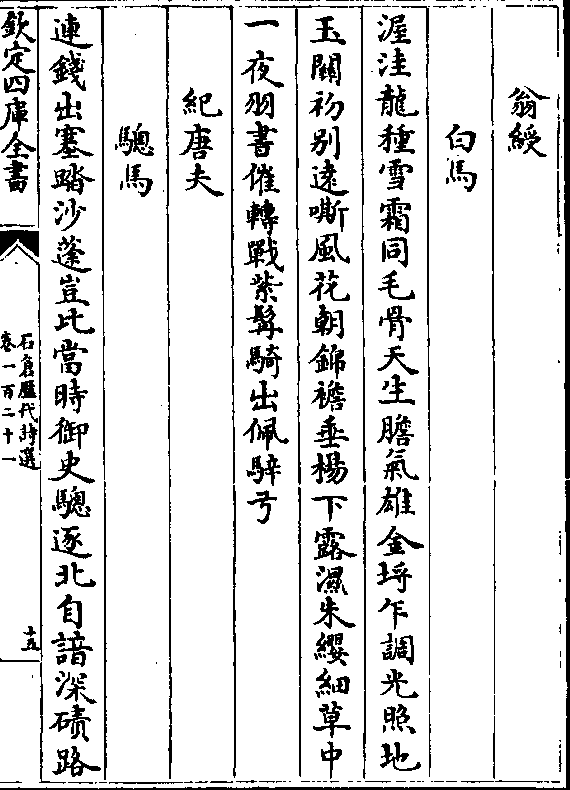 翁綬
白馬
渥洼龍種雪霜同毛骨天生膽氣雄金埒乍調光照地
玉關初别逺嘶風花朝錦襜垂楊下露濕朱纓細草中
一夜羽書催轉戰紫髯騎出佩騂弓
紀唐夫
驄馬
連錢出塞踏沙蓬豈比當時御史驄逐北自諳深磧路
欽定四庫全書
石倉歷代詩選
卷一百二十一
十五